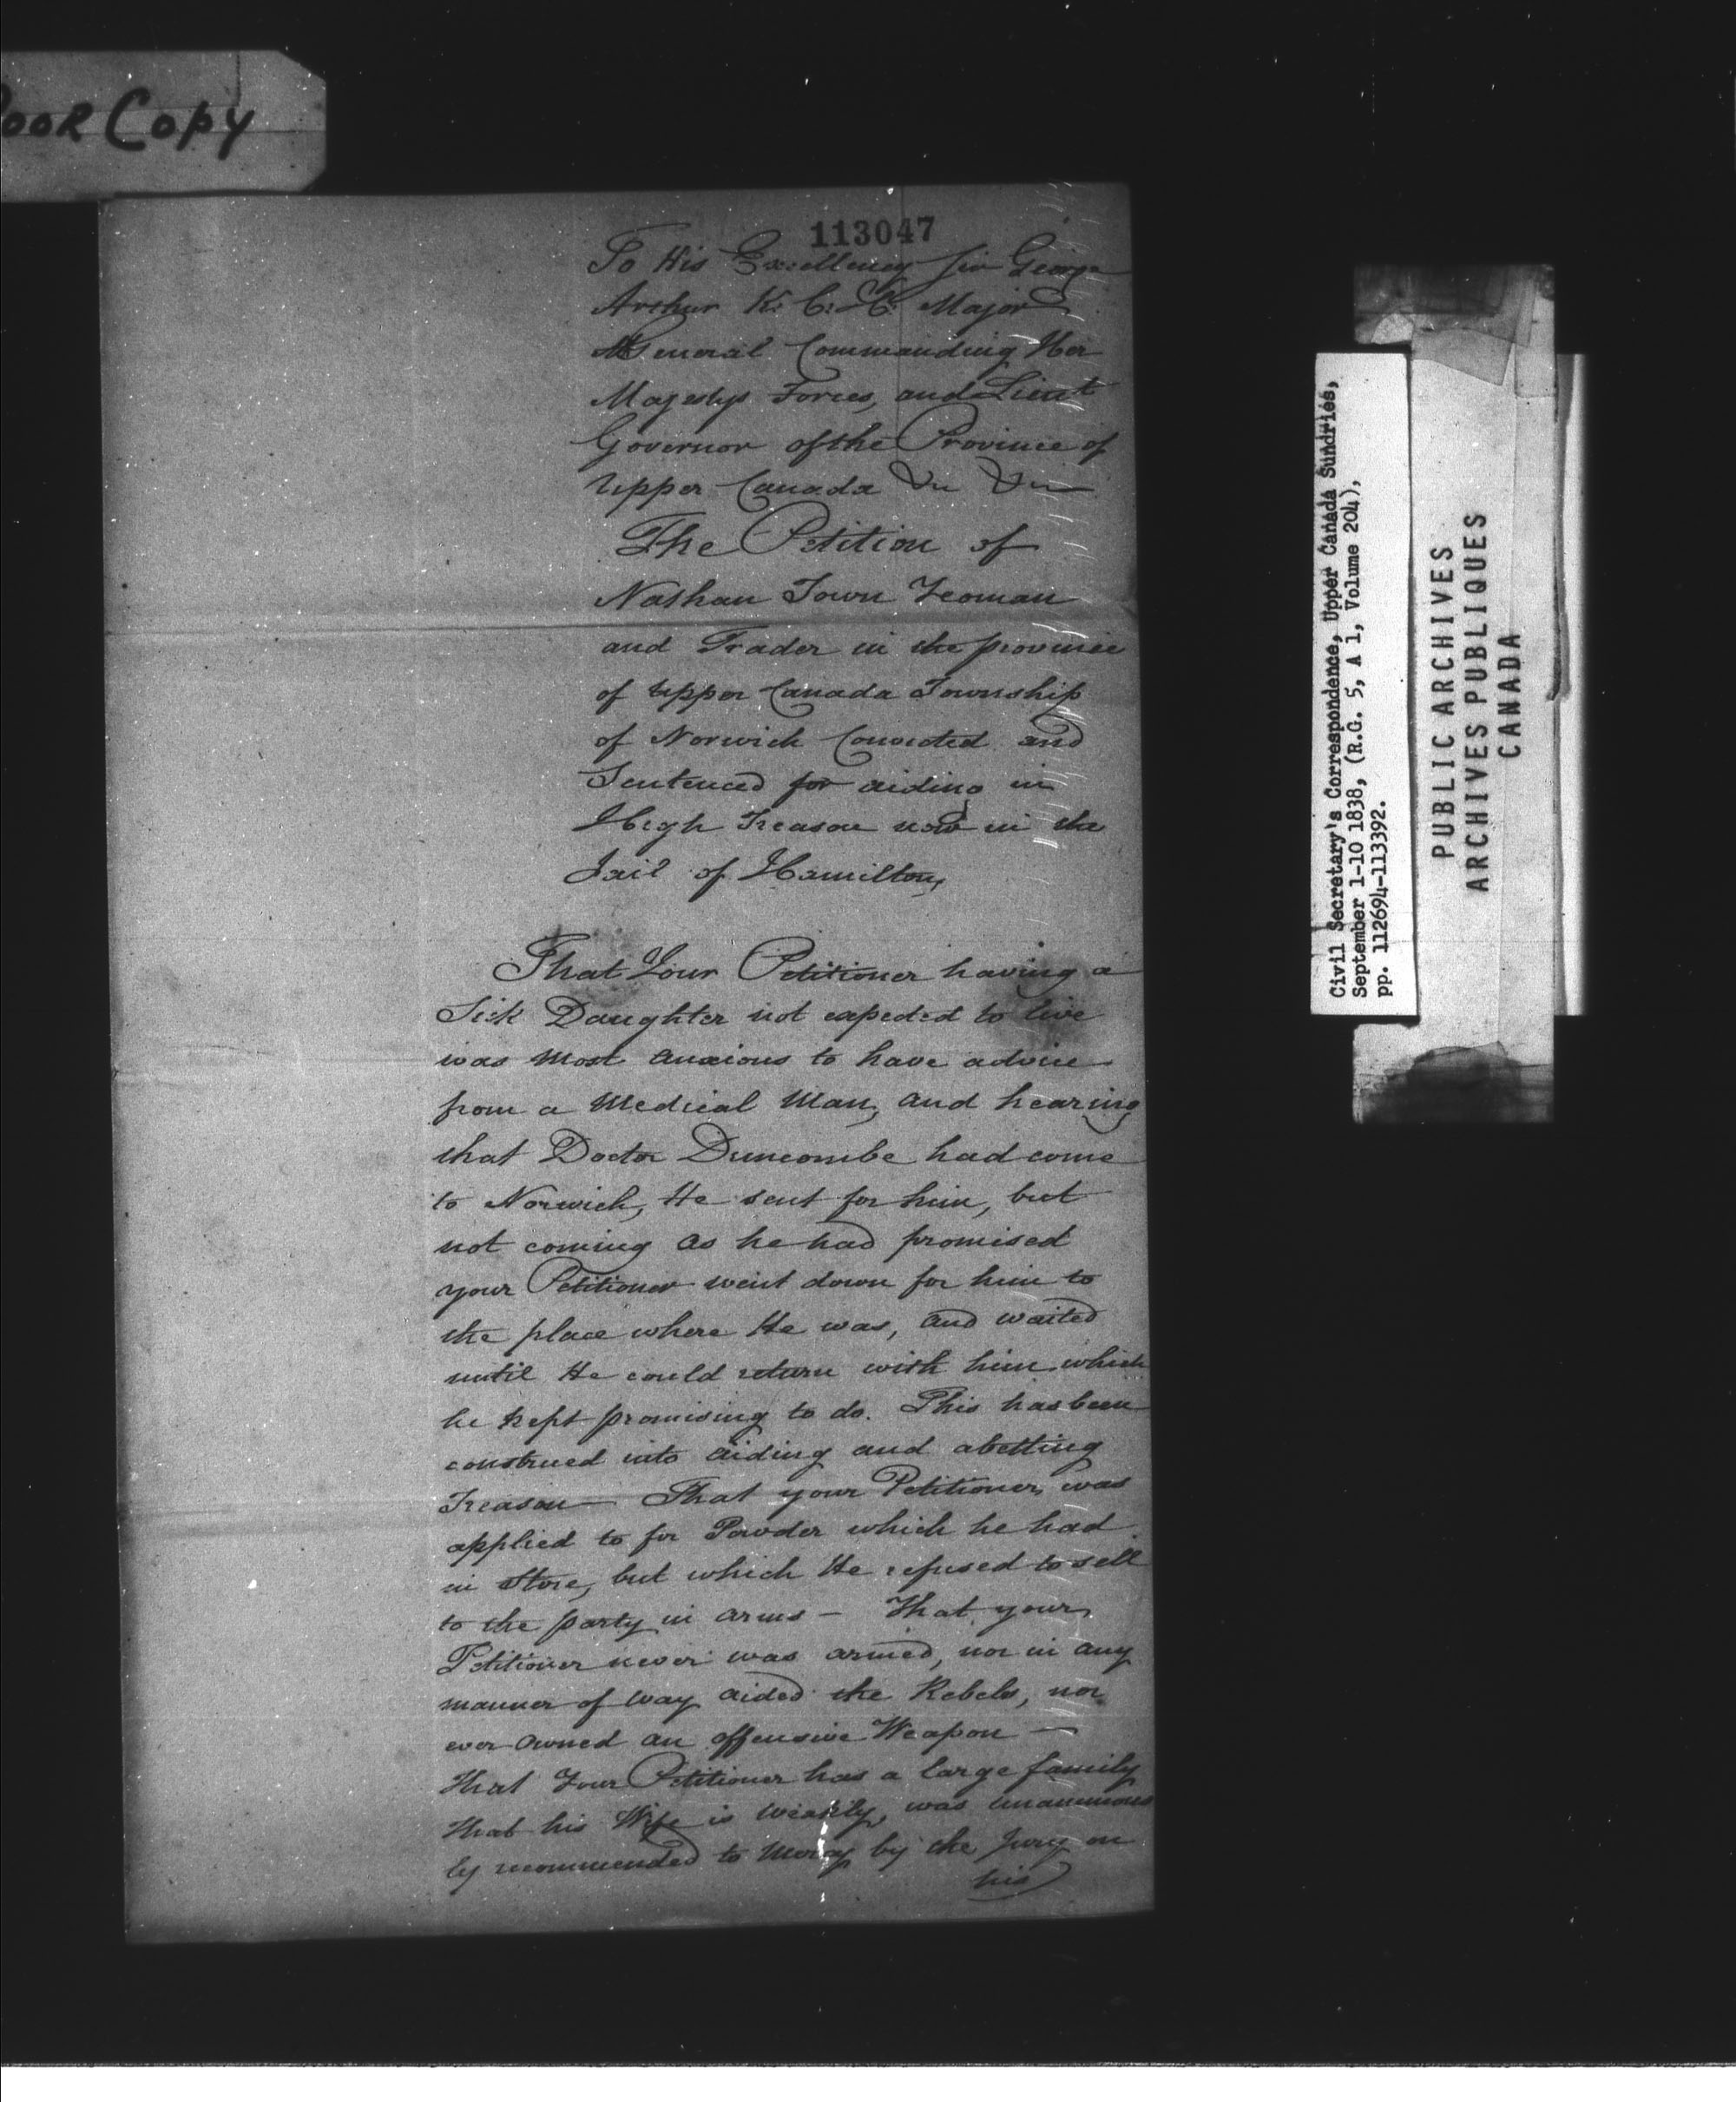 POOR COPY
113047
To His Excellency Sir George
Arthur K. C. H. Major
General Commanding Her
Magestys Forces, and Lieut
Governor of the Province of
Upper Canada &c &c
The Petition of
Nathan Town Yeoman
and Trader in the province
of Upper Canada Township
of Norwich Convicted and
Sentenced for aiding in
High Treason now in the
Jail of Hamilton,
That Your Petitioner having a
Sick Daughter not expected to live
was most anxious to have advice
from a Medical Man, and hearing
that Doctor Duncombe had come
to Norwich, He sent for him, but
not coming as he had promised
your Petitioner went down for him to
the place where He was, and waited
until He could return with him which
he kept promising to do. This has been
construed into aiding and abetting
Treason — That your Petitioner was
applied to for Powder which he had
in Store, but which He refused to sell
to the party in arms — That your
Petitioner never was armed, nor in any
manner of way aided the Rebels, nor
ever owned an offensive Weapon —
That Your Petitioner has a large family
that his Wife is weakly, was unanimous
ly recommended to Mercy by the Jury on
his
Civil Secretary's Correspondence, Upper Canada Sundries,
September 1-10 1838, (R.G. 5, A 1, Volume 204),
pp. 112694-113392.
PUBLIC ARCHIVES
ARCHIVES PUBLIQUES
CANADA